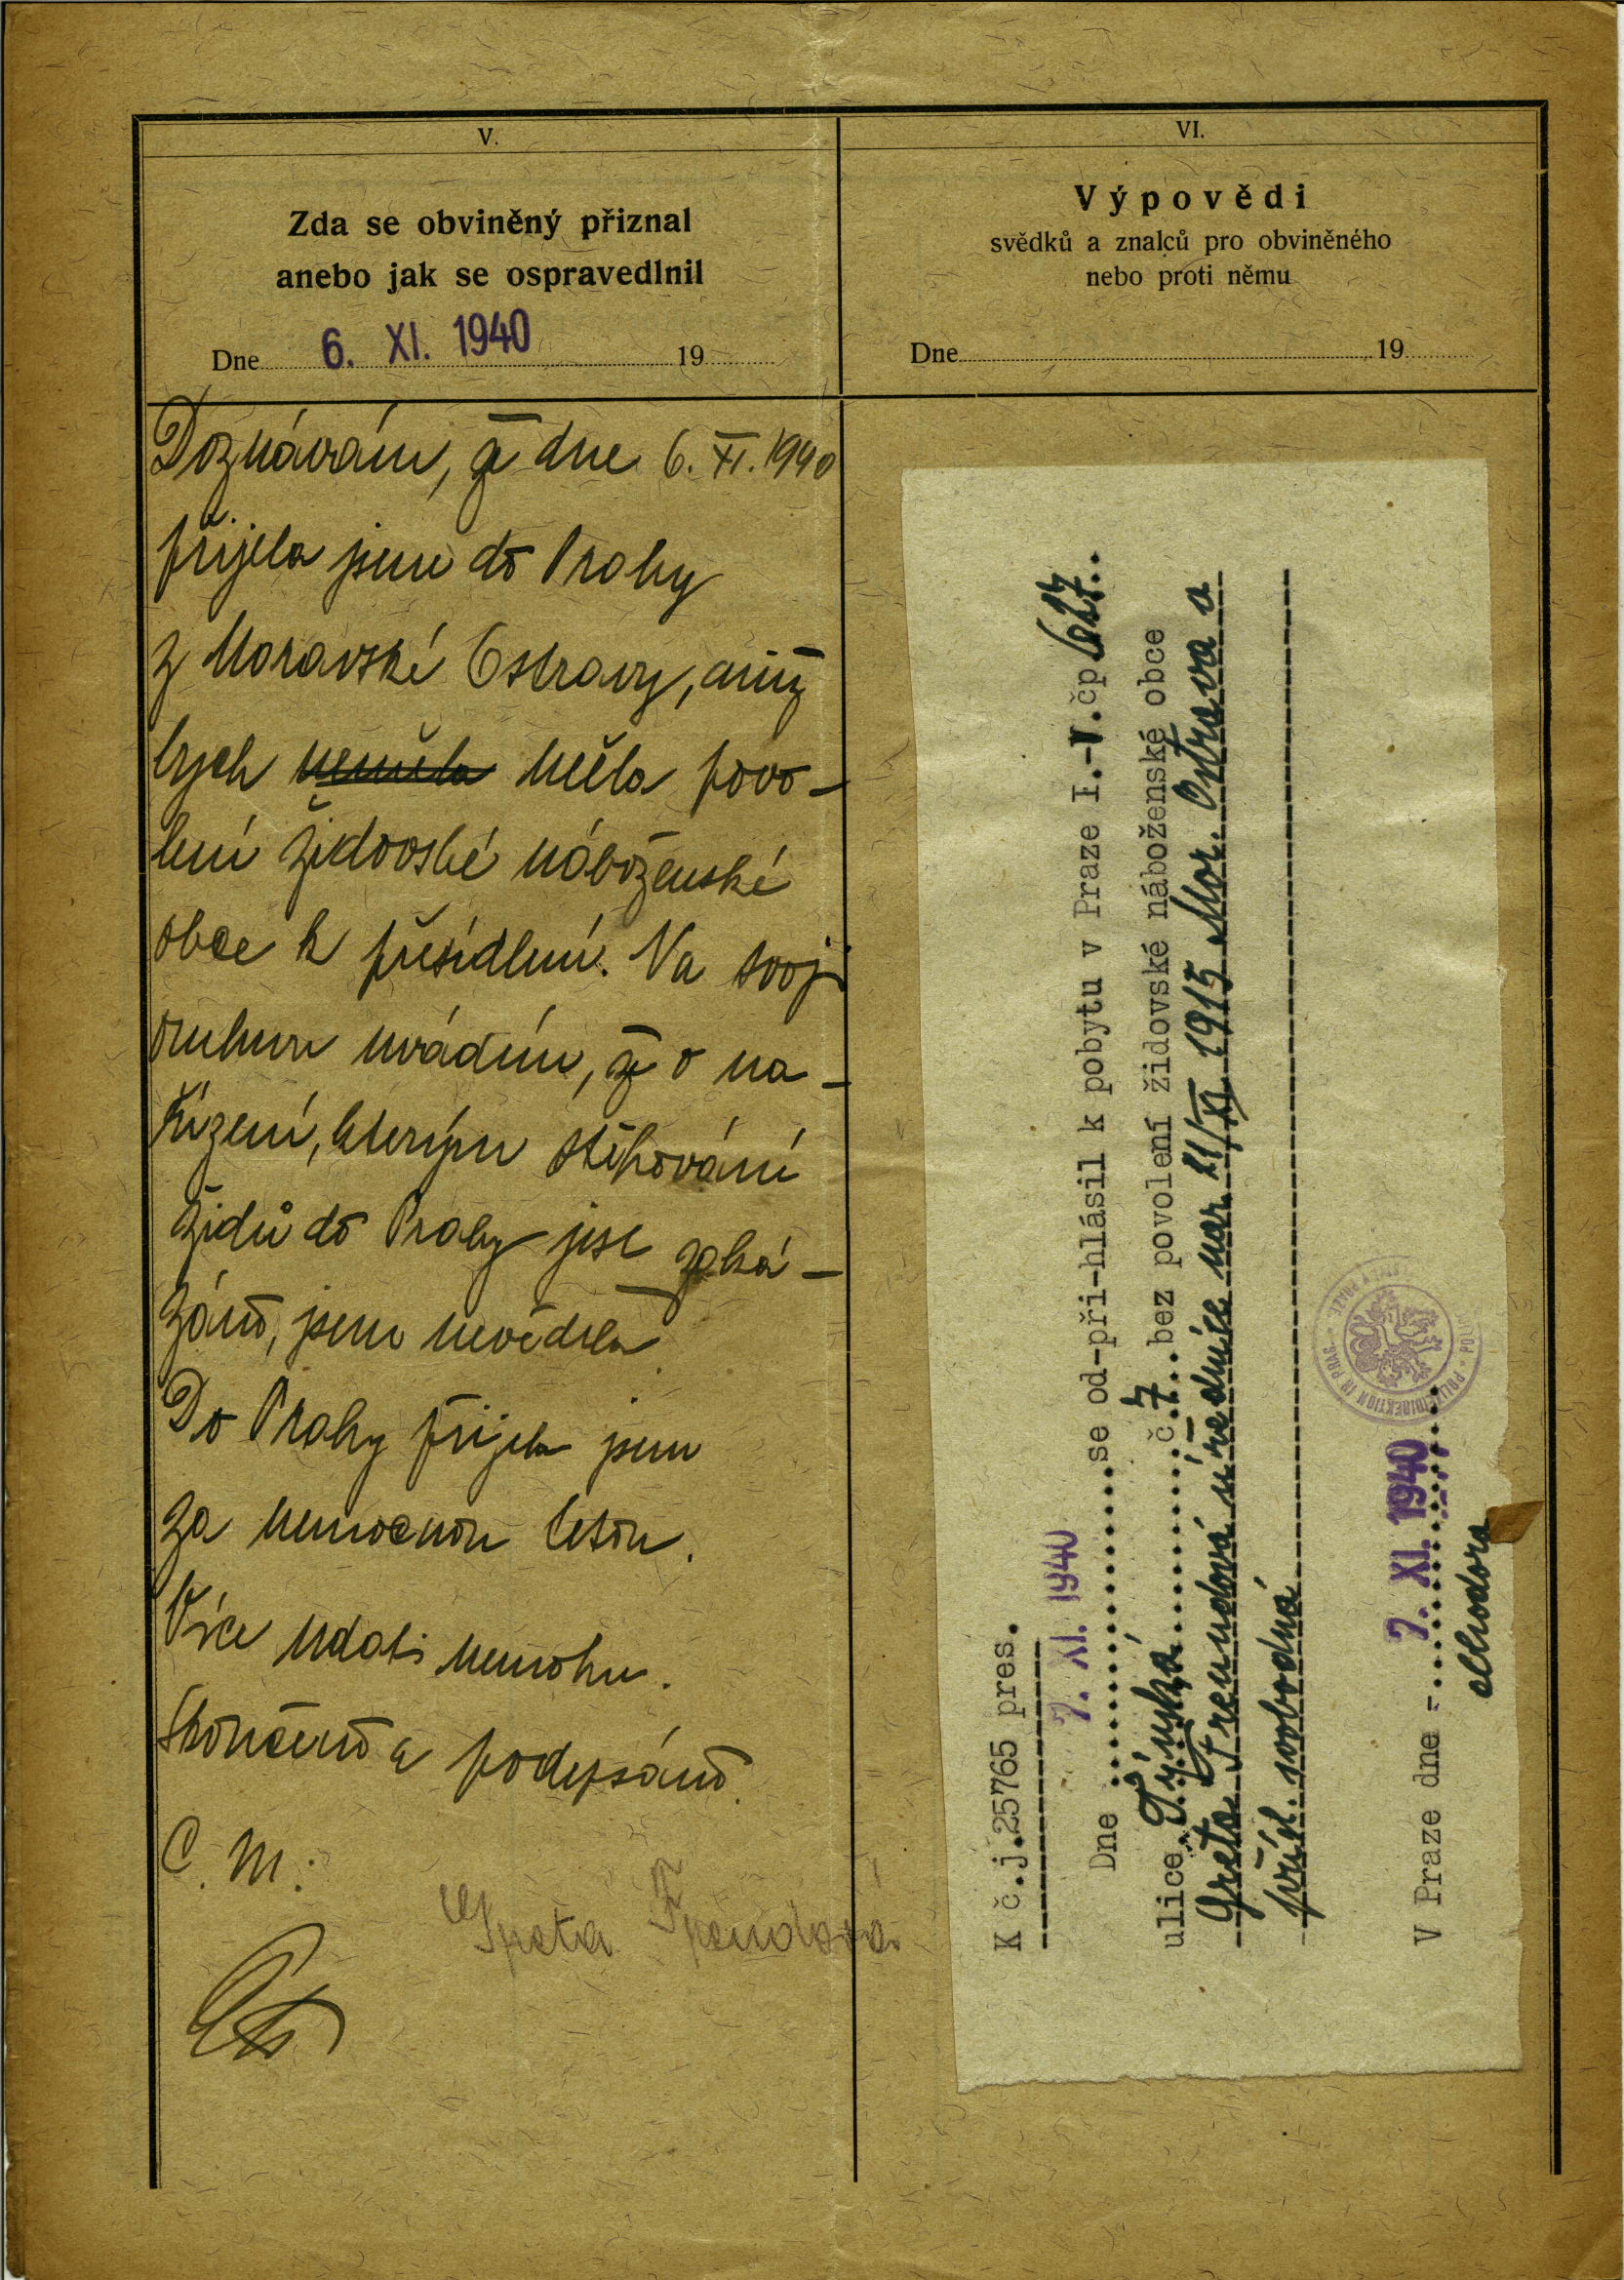 V.
Zda se obviněný přiznal
anebo jak se ospravedlnil
Dne 6. XI. 1940 19
Doznávám, že dne 6. XI. 1940
přijela jsem do Prahy
z Moravské Ostravy, aniž
bych neměla měla povo-
lení židovské náboženské
obce k přesídlení. Na svoji
omluvu uvádím, že o na-
řízení, kterým stěhování
židů do Prahy jest zaká-
záno, jsem nevěděla.
Do Prahy přijela jsem
za nemocnou tetou.
Více udati nemohu.
Skončeno a podepsáno.
C. M.:
Greta Freudová
VI.
Výpovědi
svědků a znalců pro obviněného
nebo proti němu
Dne 19
K č.j.25765 pres.
Dne 7. XI. 1940 se od-při-hlásil k pobytu v Praze I.-V.čp 627..
ulice Týnská č.7 bez povolení židovské náboženské obce
Greta Freundová úřednice nar. 21/XI 1915 Mor. Ostrava a
přísl. svobodná
POLIZEIDIREKTION IN PRAG
V Praze dne - 7. XI. 1940